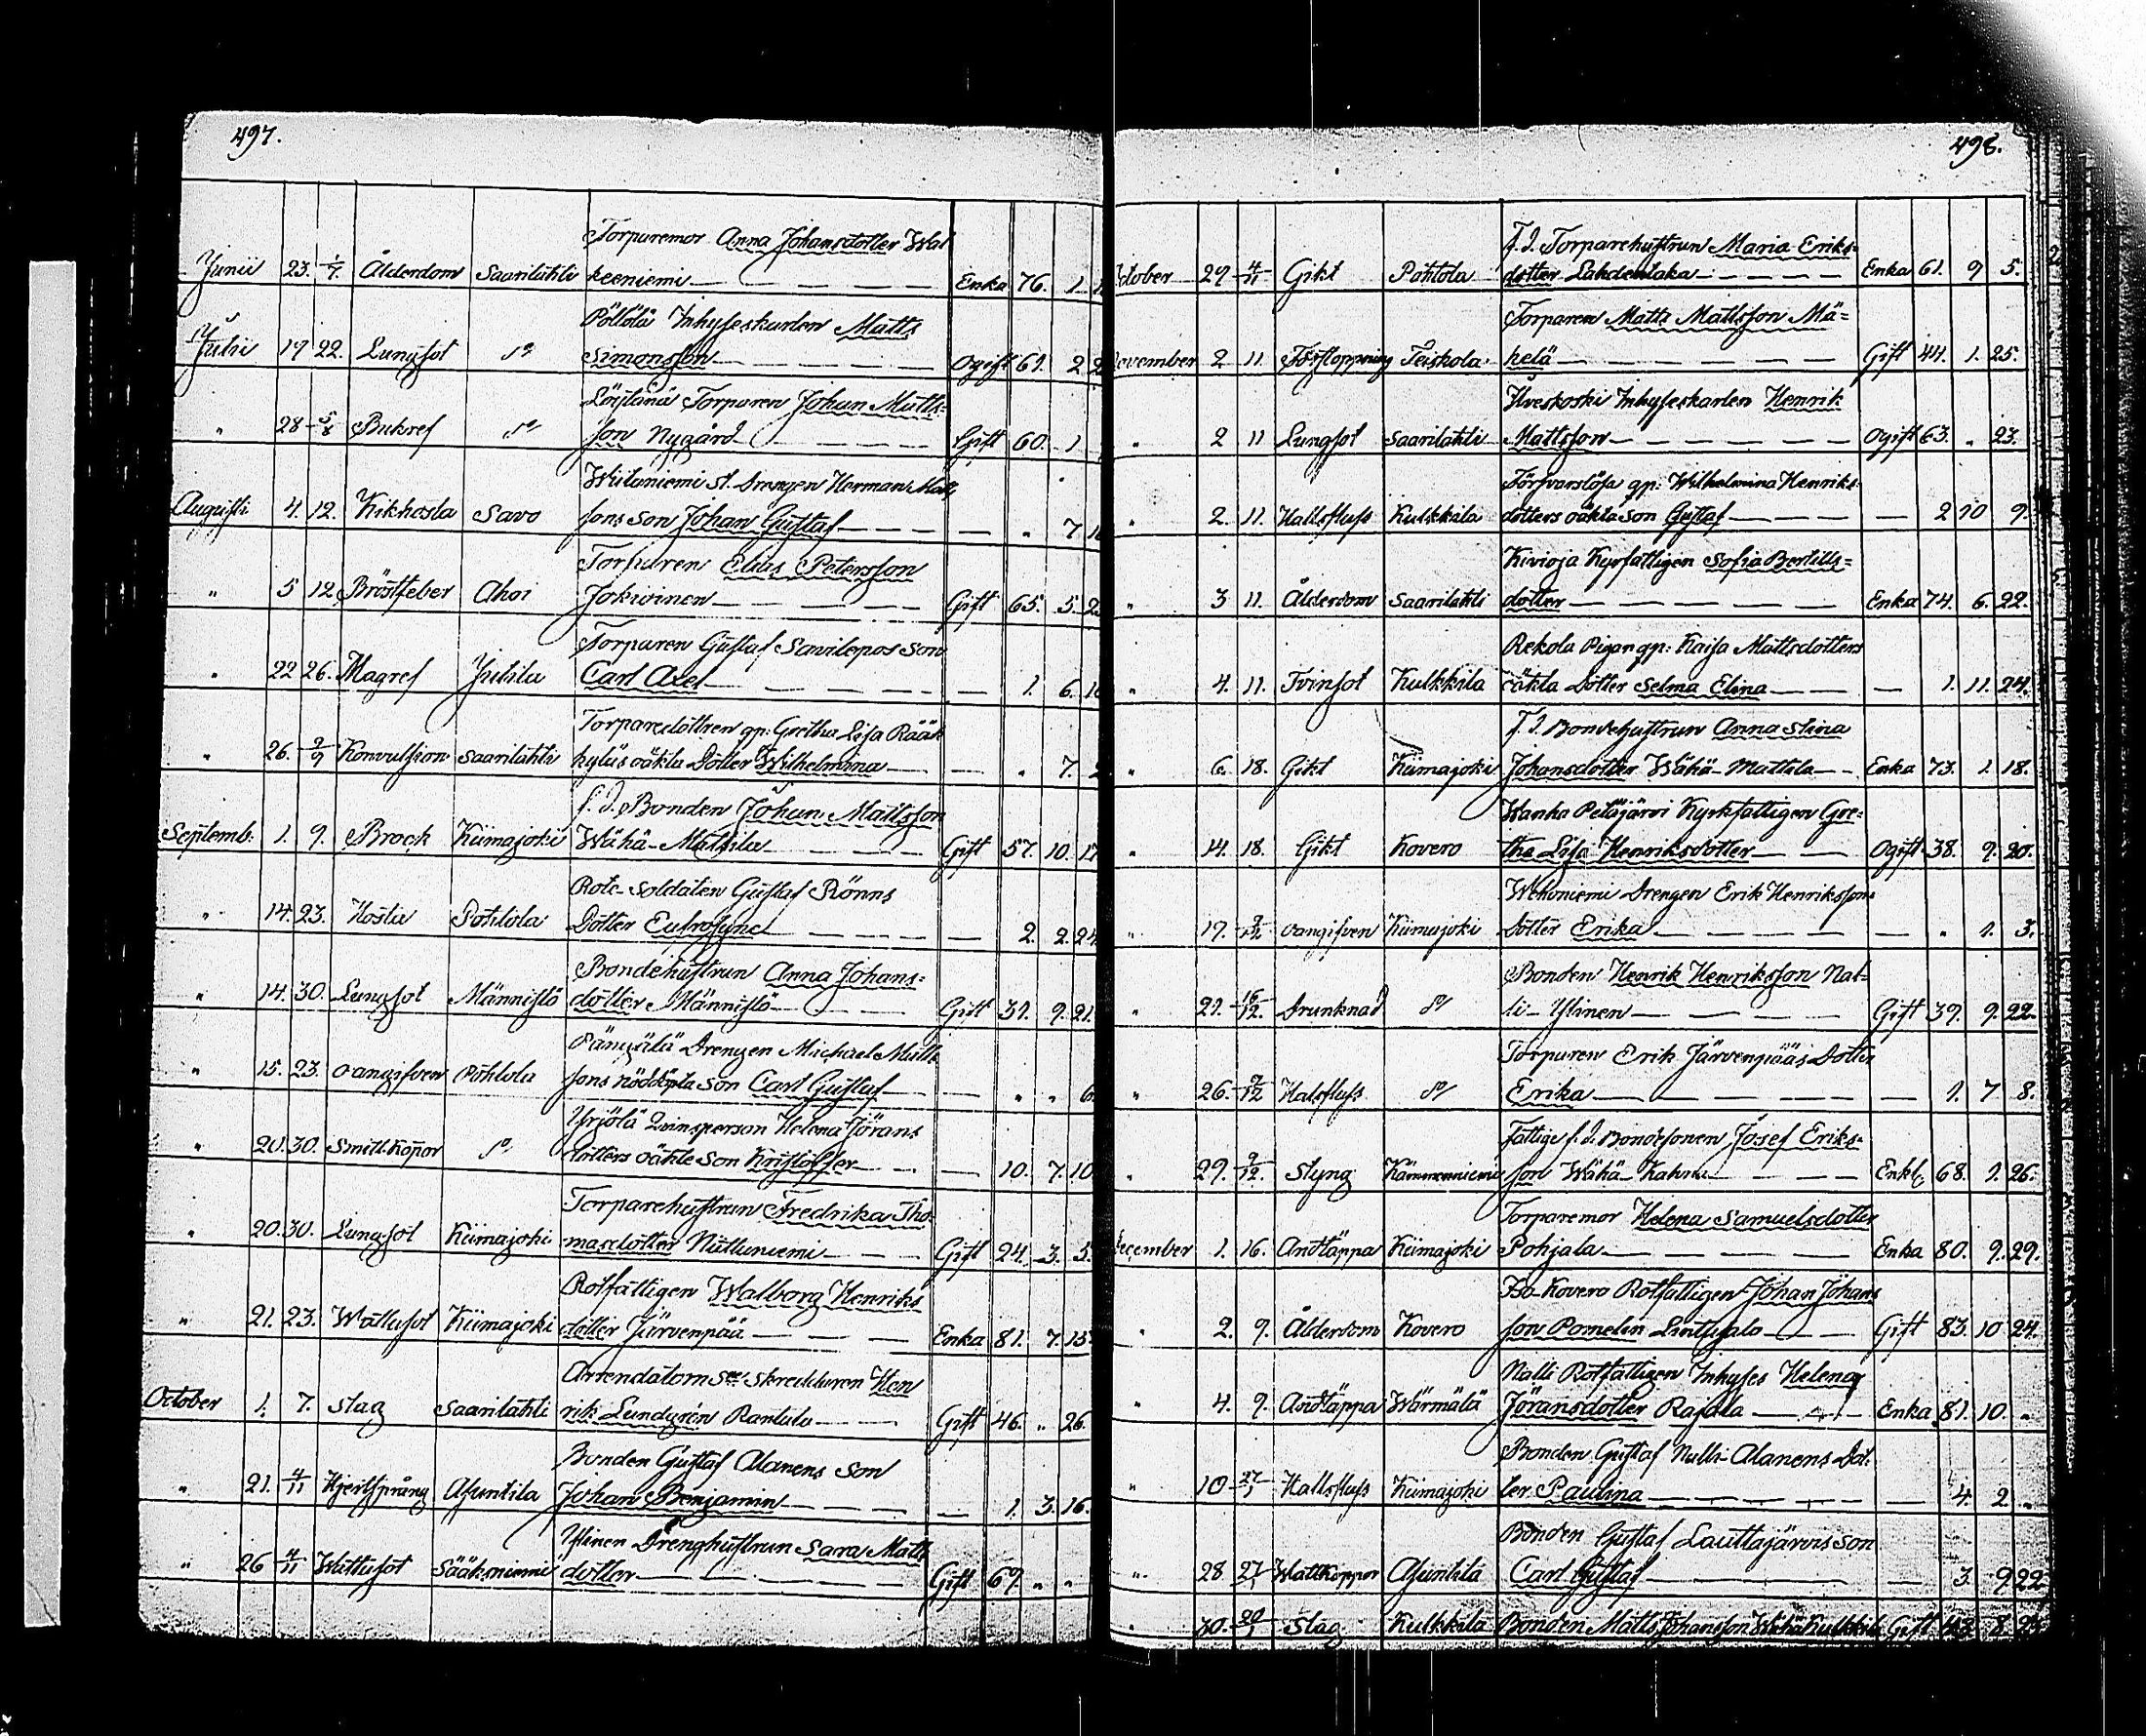 497.
Torparemor Anna Johansdotter Wal
Junii 23. 1/7. Ålderdom Saarilahti keeniemi Enka 76. 1.
Pöllölä Inhyseskarlen Matts
Julii 17 22. Lungsot do Simonsson Ogift 61. 2
Löylänä Torparen Johan Matts-
" 28 5/8 Bukref do son Nygård Gift 60. 1
Wiitaniemi st. Drengen Herman Matts
Augusti 4. 12. Kikhosta Savo sons son Johan Gustaf — " 7
Torparen Elias Petersson
" 5 12 Bröstfeber Ahoi Jokioinen Gift 65. 5.
Torparen Gustaf Savilepos son
" 22 26. Magref Julila Carl Axel — 1. 6.
Torparedottren gp: Gretha Lisa Rääk
" 26. 2/9 Konvulsion Saarilahti kyläs oäkta Dotter Wilhelmina — " 7.
f. d. Bonden Johan Mattsson
Septemb: 1. 9. Brock Kiimajoki Wähä-Mattila Gift 57. 10. 17
Rote-Soldaten Gustaf Rönns
" 14. 23. Hosta Pohtola Dotter Eufrosyne — 2. 2. 24.
Bondehustrun Anna Johans-
" 14. 30. Lungsot Männistö dotter Männistö Gift 31. 9. 21.
Drengen Michael Matts
" 15. 23. oangifven Pohtola sons nöddöpta son Carl Gustaf — " " 6.
Yrjölä Qvinsperson Helena Jörans
" 20. 30. Smitt.Kopor do dotters oäkte son Kristoffer — 10. 7. 10
Torparehustrun Fredrika Tho-
" 20. 30. Lungsot Kiimajoki masdotter Niittuniemi Gift 24. 3. 5.
Rotfattigen Walborg Henriks
" 21. 23. Wattusot Kiimajoki dotter Järvenpää Enka 81. 7. 15
Arrendatorn Skreddaren Hen
October 1. 7. Slag Saarilahti rik Lundgrén Rantala Gift 46. " 26.
Bonden Gustaf Alanens Son
" 21. 4/11 Hjertsprång Asuntila Johan Benjamin — 1. 3. 16.
Ylinen Drenghustrun Sara Matts
" 26 4/11 Wattusot Sääksniemi dotter Gift 69. " "
498.
F. d. Torparehustrun Maria Eriks-
October 29 4/11 Gikt Pohtola dotter Lahdentaka Enka 61. 9 5.
Torparen Matts Mattsson Mä-
November 2 11. Förstoppning Teiskola kelä Gift 44. 1. 25.
Ilveskoski Inhyseskarlen Henrik
" 2 11 Lungsot Saarilahti Mattsson Ogift 63. " 23.
Försvarslösa gp: Wilhelmina Henriks-
" 2. 11. Hallsfluss Kulkkila dotters oäkta son Gustaf — 2 10 9.
Kivioja Kyrfattigen Sofia Bertills-
" 3 11. Ålderdom Saarilahti dotter Enka 74. 6. 22.
Rekola Pigan gp: Kaisa Mattsdotters
" 4. 11. Tvinsot Kulkkila oäkta Dotter Selma Elina — 1. 11. 24.
F. d. Bondehustrun Anna Stina
" 6. 18. Gikt Kiimajoki Johansdotter Wähä-Mattila Enka 73. 1. 18.
Wanha Petäjärvi Kyrkfattigen Gre-
" 14. 18. Gikt Kovero tha Lisa Henriksdotter Ogift 38. 9. 20.
Wehoniemi Drengen Erik Henrikssons
" 19. 2/12 oangifven Kiimajoki dotter Erika — " 1. 3.
Bonden Henrik Henriksson Nal-
" 21. 16/12. Drunknad do li-Ylinen Gift 39. 9. 22.
Torparen Erik Järvenpääs Dotter
" 26. 2/12 Halsfluss do Erika — 1. 7 8.
Fattige f. d. Bondesonen Josef Eriks-
" 29. 2/12. Styng Kämmenniemi son Wähä-Enkl. 68. 1. 26.
Torparemor Helena Samuelsdotter
December 1. 16. Andtäppa Kiimajoki Pohjala Enka 80. 9. 29.
Iso-Kovero Rotfattigen Johan Johans
" 2. 9. Ålderdom Kovero son Pomelin Lintusalo Gift 83. 10 24.
Nalli Rotfattigen Inhyses Helena
" 4. 9. Andtäppa Wärmälä Jöransdotter Rajala Enka 81. 10. "
Bonden Gustaf Nalli-Alanens Dot-
" 10 27/1 Hallsfluss Kiimajoki ter Paulina — 4. 2. "
Bonden Gustaf Lauttajärvis son
" 28 27/1 Wattkoppor Asuntila Carl Gustaf — 3. 9 22
30. 20/1 Slag Kulkkila Bonden Matts Johansson Wähä Kulkkila Gift 43 8. 24